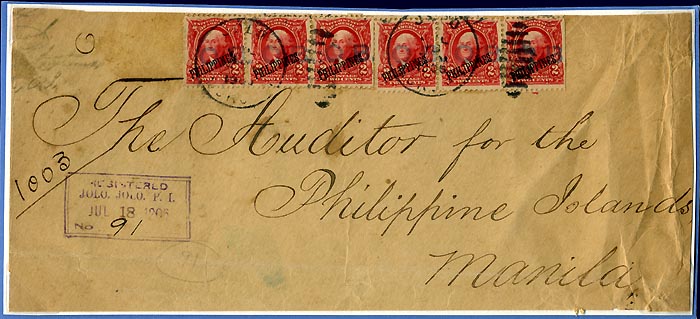 PHILIPPINES PHILIPPINES PHILIPPINES PHILIPPINES PHILIPPINES PHILIPPINES
The Auditor for the
Philippine Islands
Manila
1003
REGISTERED
JOLO, JOLO, P. I.
JUL 18 1906
No 91
91